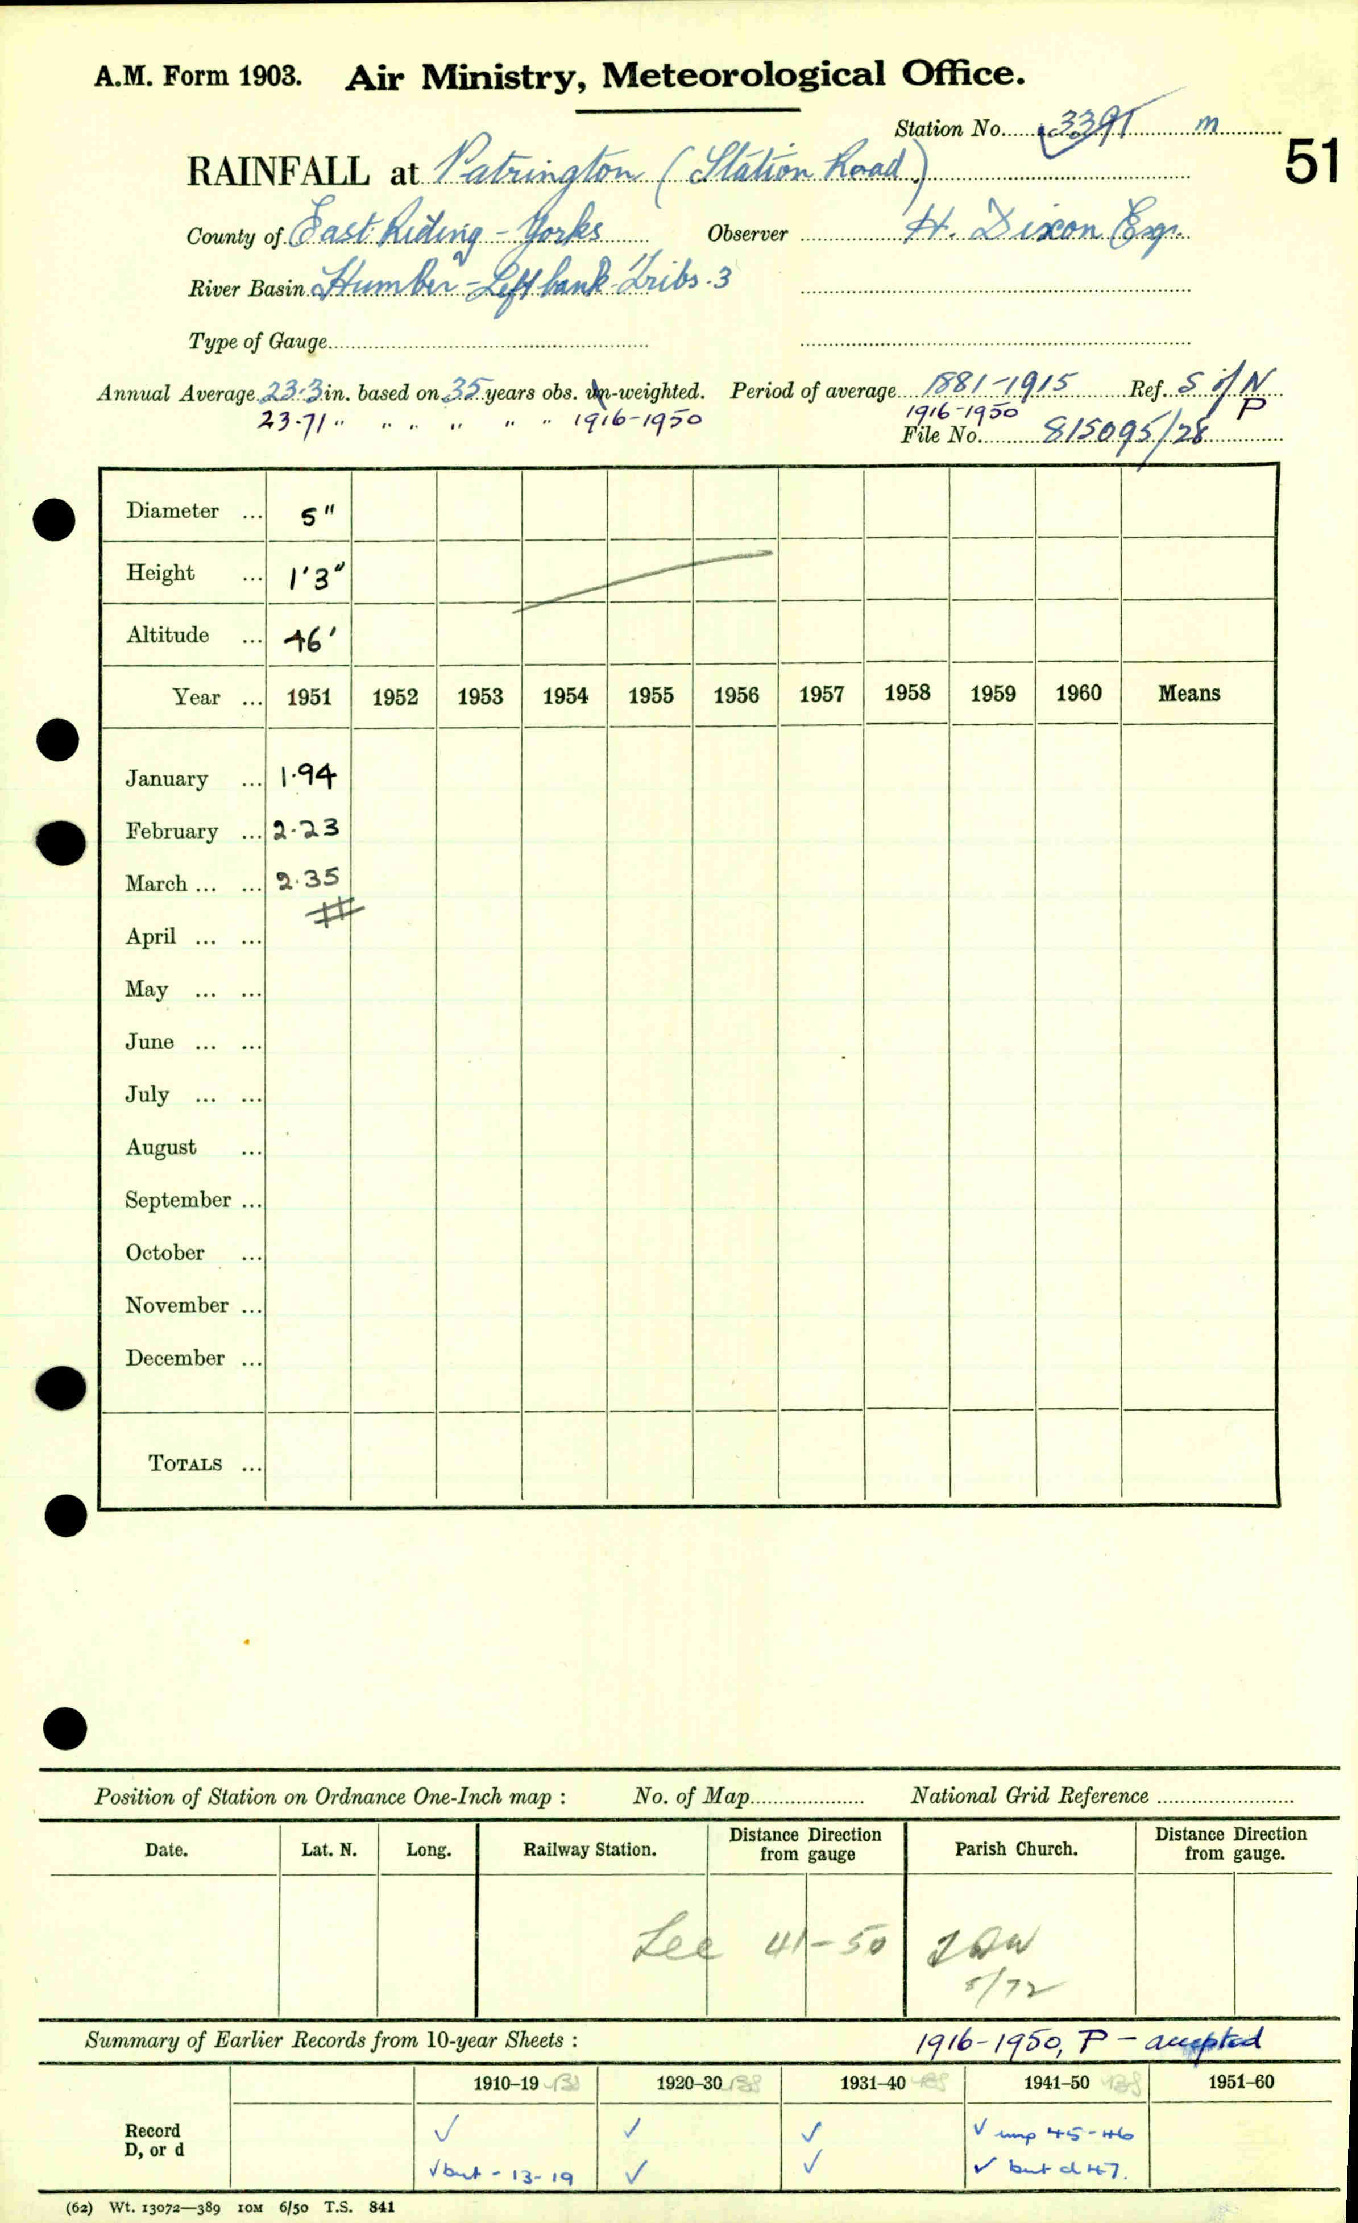 A.M. Form 1903. Air Ministry, Meteorological Office.
Station No. 3391 m
51
RAINFALL at Patrington (Station Road)
County of East Riding - Yorks Observer H. Dixon Esq.
River Basin Humber - Left bank Tribs. 3
Type of Gauge
Annual Average 23.3 in. based on 35 years obs. un-weighted. Period of average 1881-1915 Ref. S of N
23.71 " " " " " " 1916-1950 1916-1950 P
File No. 815095/28
Diameter ... 5"
Height ... 1'3"
Altitude ... 46'
Year ... 1951 1952 1953 1954 1955 1956 1957 1958 1959 1960 Means
January ... 1.94
February ... 2.23
March ... ... 2.35
April ... ...
May ... ...
June ... ...
July ... ...
August ...
September ...
October ...
November ...
December ...
TOTALS ...
Position of Station on Ordnance One-Inch map : No. of Map National Grid Reference
Date. Lat. N. Long. Railway Station. Distance Direction from gauge Parish Church. Distance Direction from gauge.
Lee 41-50
8/72
Summary of Earlier Records from 10-year Sheets : 1916-1950, P - accepted
1910-19 1920-30 1931-40 1941-50 1951-60
Record ✓ ✓ ✓ ✓ imp 45-46
D, or d ✓ but - 13-19 ✓ ✓ ✓ but d 47.
(62) Wt. 13072—389 10M 6/50 T.S. 841